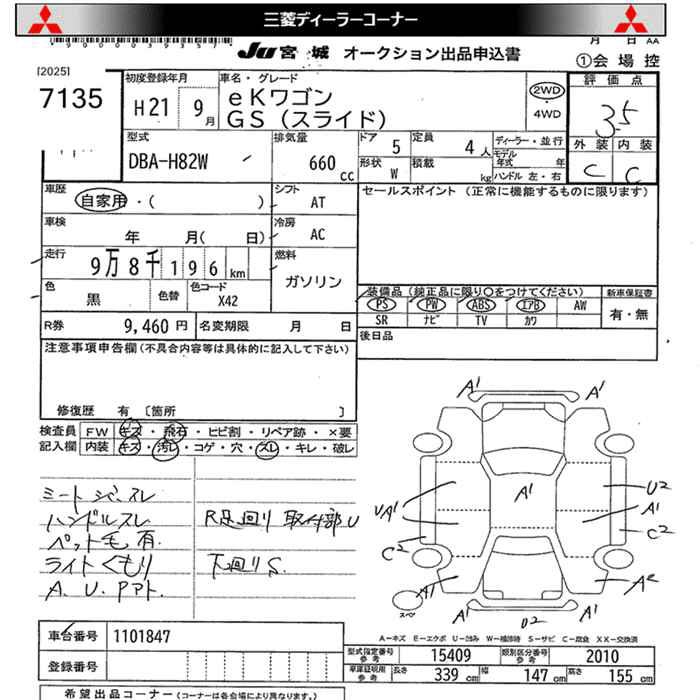 三菱ディーラーコーナー
JU 宮城 オークション出品申込書
月 日 AA
①会場控
[2025]
7135
初度登録年月
H21 9月
車名・グレード
eKワゴン
GS（スライド）
2WD
・
4WD
評価点
3.5
外装 内装
C C
型式
DBA-H82W
排気量
660 cc
ドア 5
定員 4人
形状 W
積載 kg
ディーラー・並行
モデル年式 年
ハンドル 左・右
車歴
自家用・( )
シフト AT
セールスポイント（正常に機能するものに限ります）
車検
年 月( 日)
冷房 AC
走行
9万8千196km
燃料 ガソリン
色 黒
色替
色コード X42
装備品（純正品に限り〇をつけてください）
PS PW ABS エアB AW
SR ナビ TV カワ
新車保証書
有・無
R券 9,460円
名変期限 月 日
後日品
注意事項申告欄(不具合内容等は具体的に記入して下さい)
修復歴 有 〔箇所 〕
検査員記入欄
FW キズ・飛石・ヒビ割・リペア跡・×要
内装 キズ・汚レ・コゲ・穴・スレ・キレ・破レ
ハンドルスレ
ペット毛有
ライトくもり
R足回り 取付部U
下廻りS.
A' A'
A'
UA' U2
A'
C2 C2
A' A2
スペア
A' A'
U2
A－キズ E－エクボ U－凹み W－補修跡 S－サビ C－腐食 XX－交換済
車台番号 1101847
登録番号
型式指定番号 参考 15409
類別区分番号 参考 2010
車庫証明用 参考 長さ 339 cm 幅 147 cm 高さ 155 cm
希望出品コーナー（コーナーは各会場により異なります。）